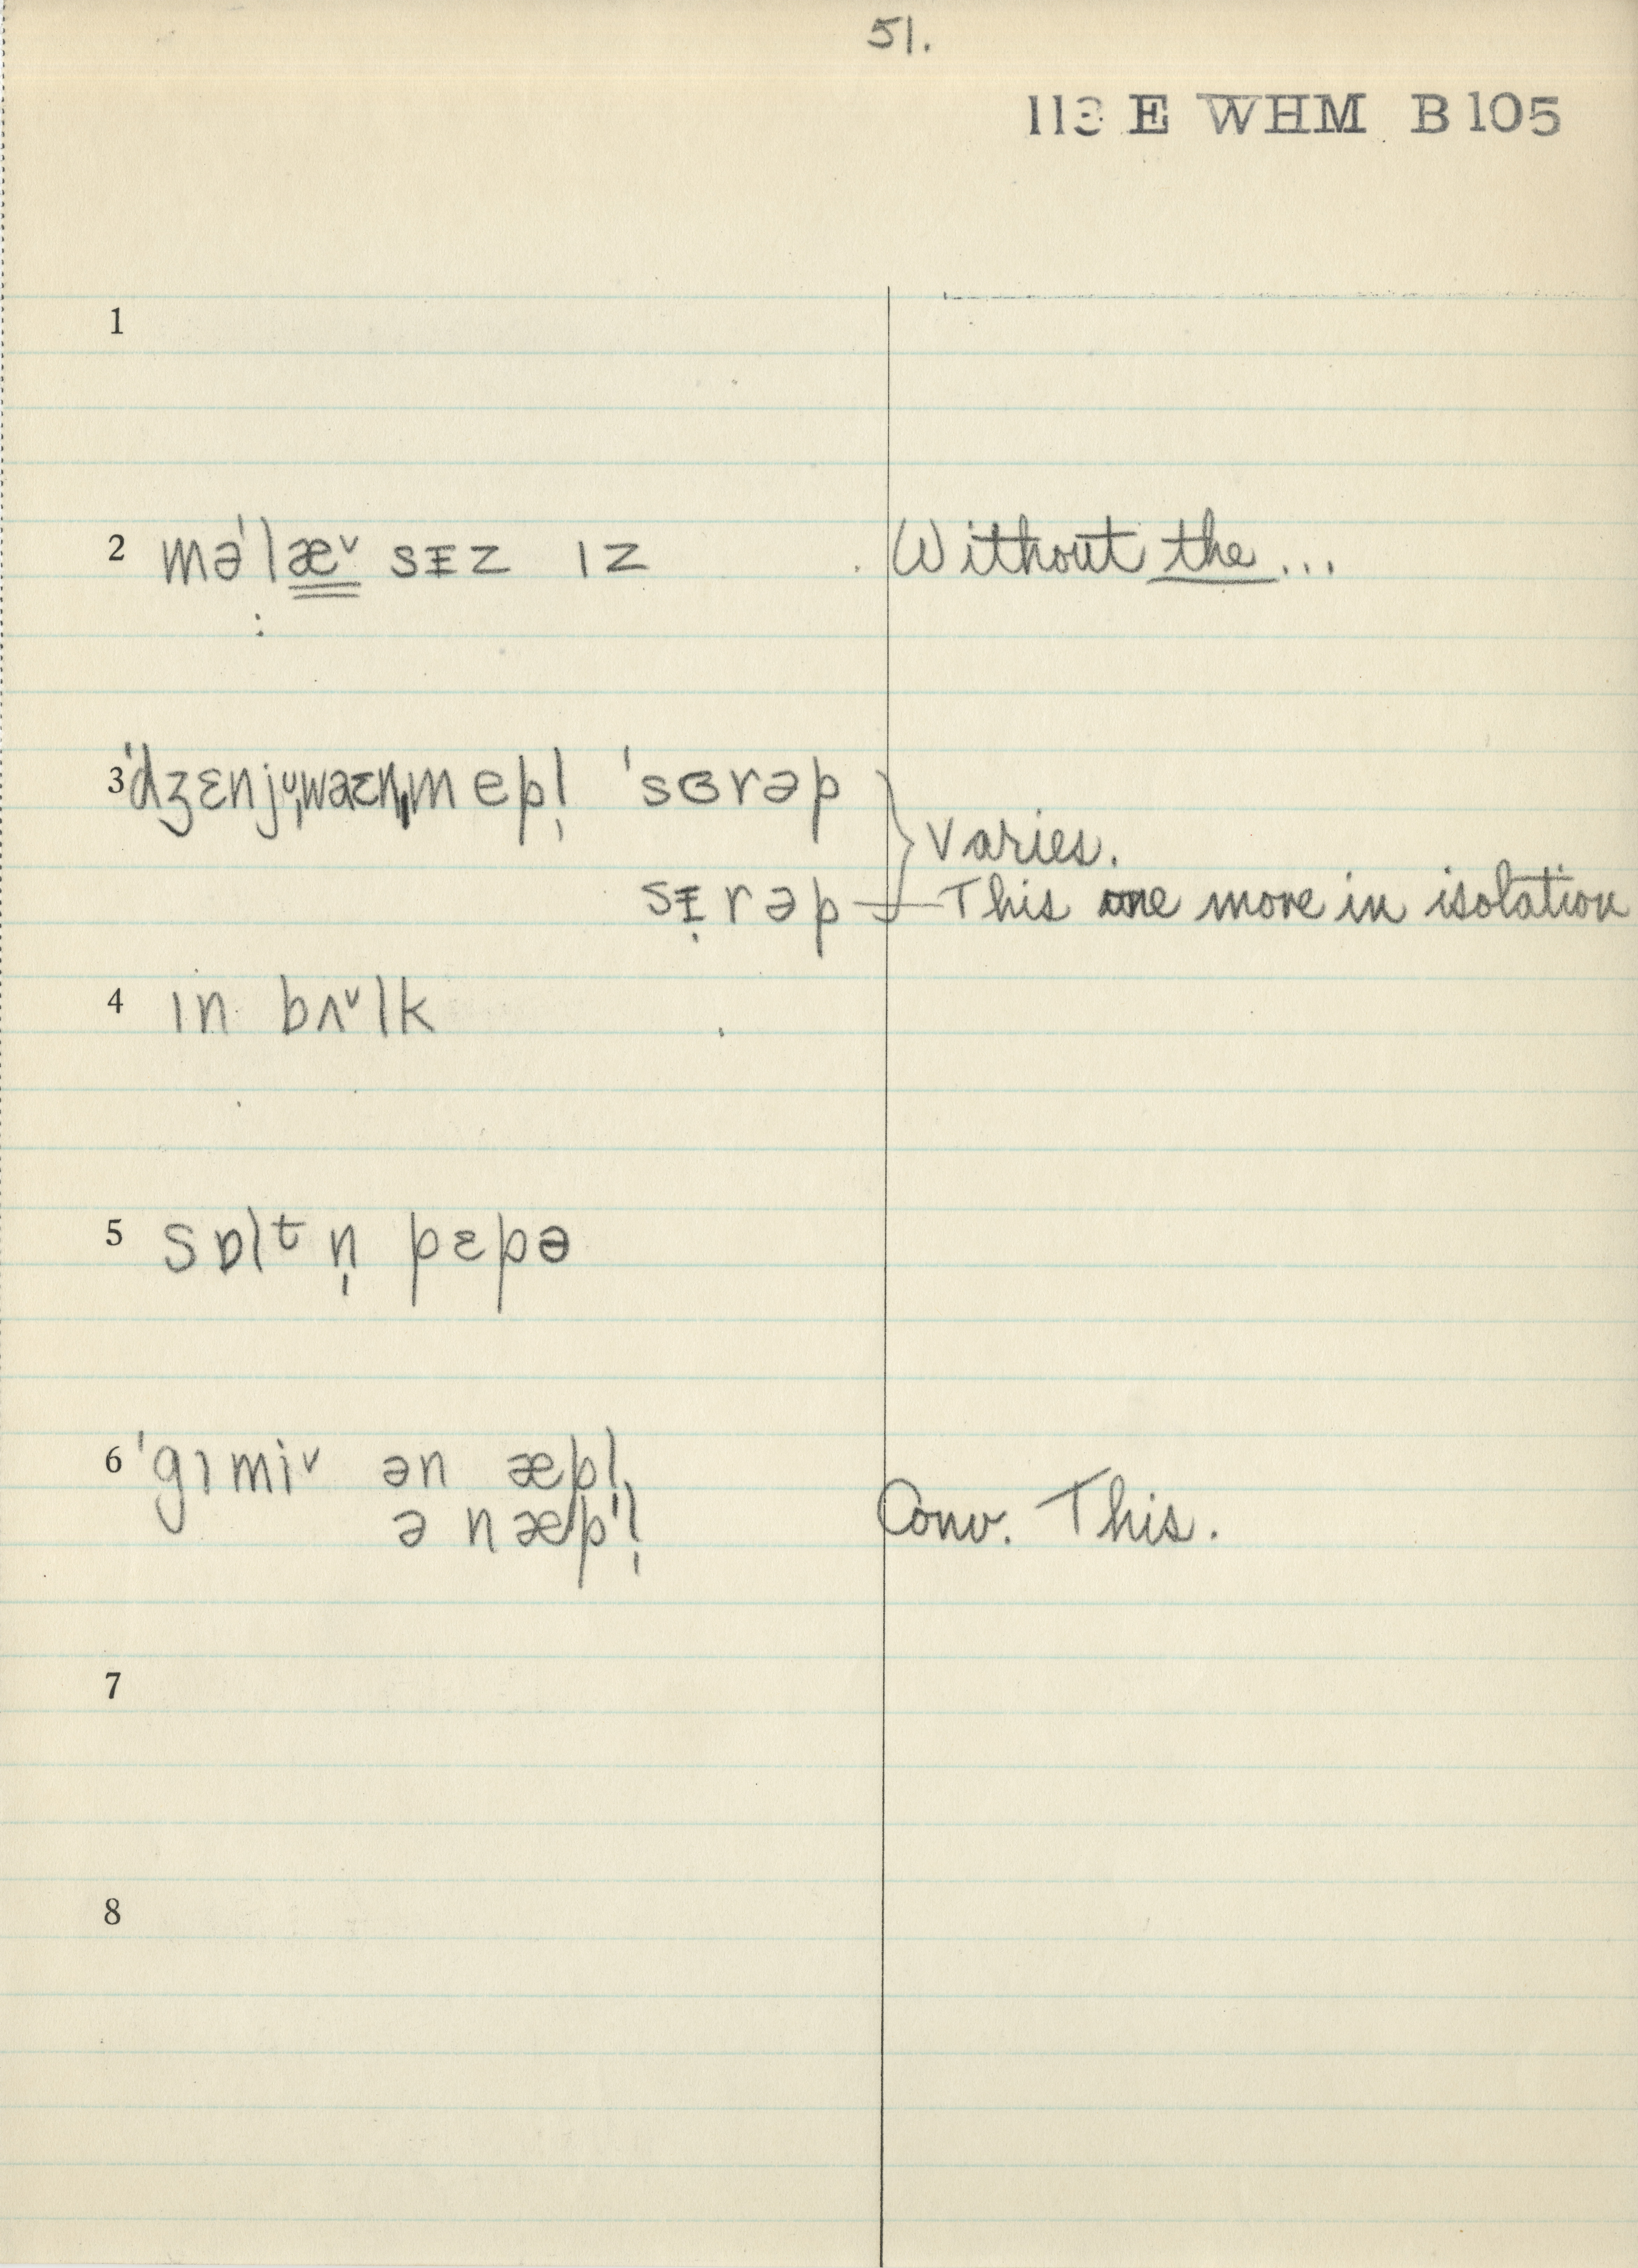 51.
113 E WHM B 105
1
2 məˈlæ˅ sᵻz ɪz Without the...
3 ˈdʒɛnjᶸ̩waɛn̩mepl̩ ˈsɞrəp
Varies.
sᵻ̣rəp This one more in isolation
4 ɪn bʌ˅lk
5 sɒlᵗn̩ pɛpə
6 ˈgɪmi˅ ən æpl̩
ə næpˈl̩ Conv. This.
7
8